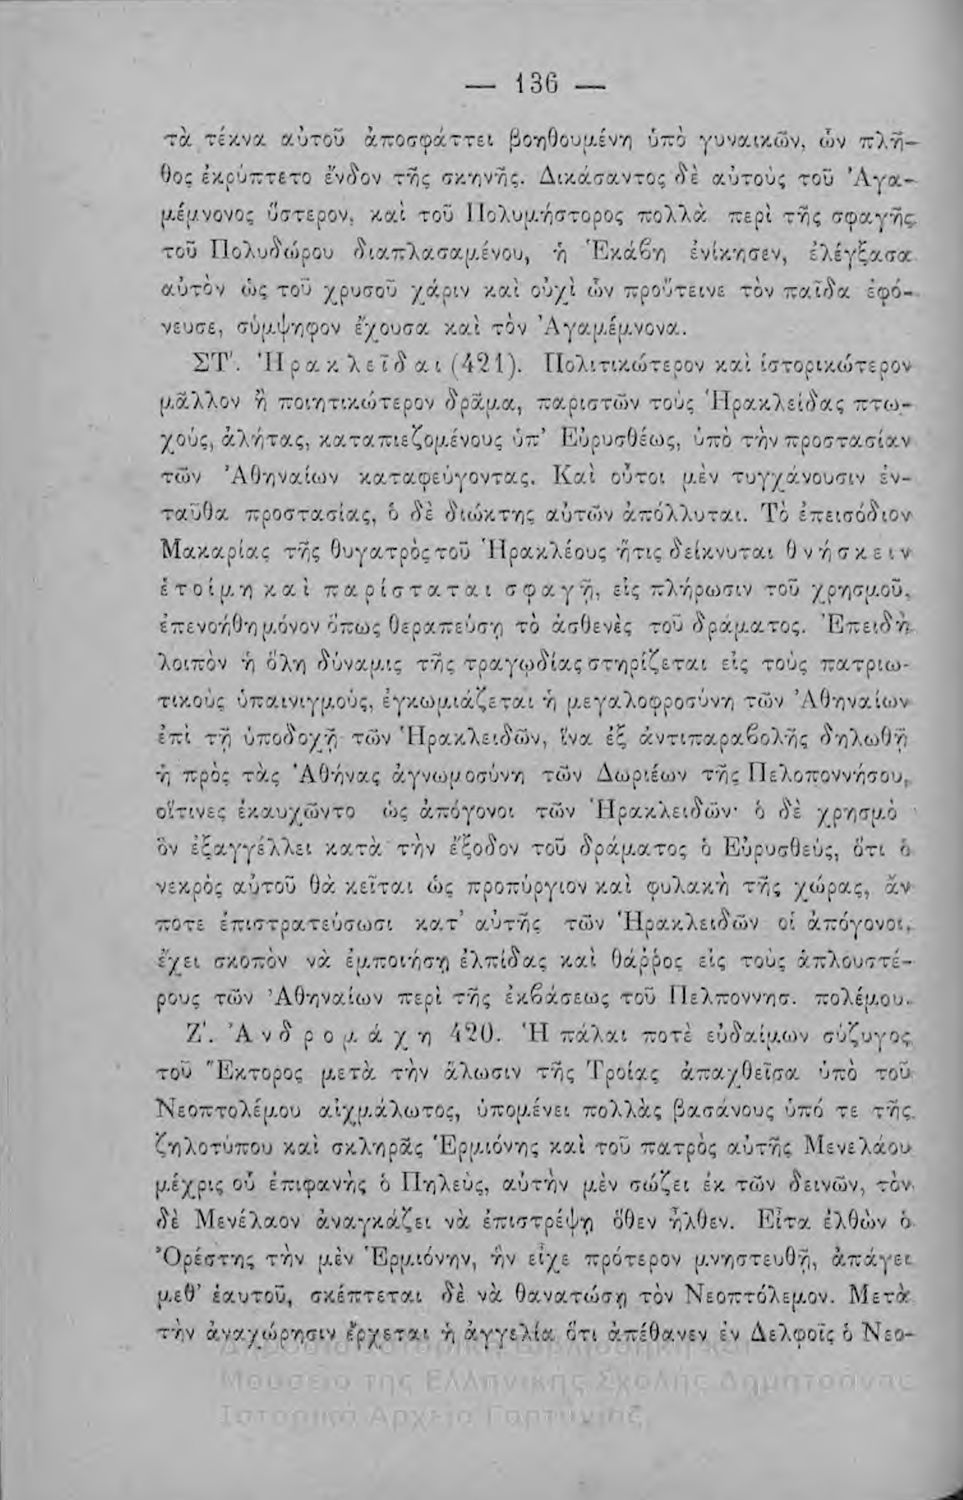 — 136 —
τὰ τέκνα αὐτοῦ ἀποσφάττει βοηθουμένη ὑπὸ γυναικῶν, ὧν πλῆ-
θος ἐκρύπτετο ἔνδον τῆς σκηνῆς. Δικάσαντος δὲ αὐτοὺς τοῦ Ἀγα-
μέμνονος ὕστερον, καὶ τοῦ Πολυμήστορος πολλὰ περὶ τῆς σφαγῆς
τοῦ Πολυδώρου διαπλασαμένου, ἡ Ἑκάβη ἐνίκησεν, ἐλέγξασα
αὐτὸν ὡς τοῦ χρυσοῦ χάριν καὶ οὐχὶ ὧν προὔτεινε τὸν παῖδα ἐφό-
νευσε, σύμψηφον ἔχουσα καὶ τὸν Ἀγαμέμνονα.
ΣΤ΄. Ἡρακλεῖδαι (421). Πολιτικώτερον καὶ ἱστορικώτερον
μᾶλλον ἢ ποιητικώτερον δρᾶμα, παριστῶν τοὺς Ἡρακλείδας πτω-
χούς, ἀλήτας, καταπιεζομένους ὑπ’ Εὐρυσθέως, ὑπὸ τὴν προστασίαν
τῶν Ἀθηναίων καταφεύγοντας. Καὶ οὗτοι μὲν τυγχάνουσιν ἐν-
ταῦθα προστασίας, ὁ δὲ διώκτης αὐτῶν ἀπόλλυται. Τὸ ἐπεισόδιον
Μακαρίας τῆς θυγατρὸς τοῦ Ἡρακλέους ἥτις δείκνυται θνήσκειν
ἑτοίμη καὶ παρίσταται σφαγῇ, εἰς πλήρωσιν τοῦ χρησμοῦ,
ἐπενοήθη μόνον ὅπως θεραπεύσῃ τὸ ἀσθενὲς τοῦ δράματος. Ἐπειδὴ
λοιπὸν ἡ ὅλη δύναμις τῆς τραγῳδίας στηρίζεται εἰς τοὺς πατριω-
τικοὺς ὑπαινιγμούς, ἐγκωμιάζεται ἡ μεγαλοφροσύνη τῶν Ἀθηναίων
ἐπὶ τῇ ὑποδοχῇ τῶν Ἡρακλειδῶν, ἵνα ἐξ ἀντιπαραβολῆς δηλωθῇ
ἡ πρὸς τὰς Ἀθήνας ἀγνωμοσύνη τῶν Δωριέων τῆς Πελοποννήσου,
οἵτινες ἐκαυχῶντο ὡς ἀπόγονοι τῶν Ἡρακλειδῶν· ὁ δὲ χρησμὸ
ὃν ἐξαγγέλλει κατὰ τὴν ἔξοδον τοῦ δράματος ὁ Εὐρυσθεύς, ὅτι ὁ
νεκρὸς αὐτοῦ θὰ κεῖται ὡς προπύργιον καὶ φυλακὴ τῆς χώρας, ἄν
ποτε ἐπιστρατεύσωσι κατ’ αὐτῆς τῶν Ἡρακλειδῶν οἱ ἀπόγονοι,
ἔχει σκοπὸν νὰ ἐμποιήσῃ ἐλπίδας καὶ θάῤῥος εἰς τοὺς ἁπλουστέ-
ρους τῶν Ἀθηναίων περὶ τῆς ἐκβάσεως τοῦ Πελποννησ. πολέμου.
Ζ΄. Ἀνδρομάχη 420. Ἡ πάλαι ποτὲ εὐδαίμων σύζυγος
τοῦ Ἕκτορος μετὰ τὴν ἅλωσιν τῆς Τροίας ἀπαχθεῖσα ὑπὸ τοῦ
Νεοπτολέμου αἰχμάλωτος, ὑπομένει πολλὰς βασάνους ὑπό τε τῆς
ζηλοτύπου καὶ σκληρᾶς Ἑρμιόνης καὶ τοῦ πατρὸς αὐτῆς Μενελάου
μέχρις οὗ ἐπιφανὴς ὁ Πηλεὺς, αὐτὴν μὲν σώζει ἐκ τῶν δεινῶν, τὸν
δὲ Μενέλαον ἀναγκάζει νὰ ἐπιστρέψῃ ὅθεν ἦλθεν. Εἶτα ἐλθὼν ὁ
Ὀρέστης τὴν μὲν Ἑρμιόνην, ἣν εἶχε πρότερον μνηστευθῆ, ἀπάγει
μεθ’ ἑαυτοῦ, σκέπτεται δὲ νὰ θανατώσῃ τὸν Νεοπτόλεμον. Μετὰ
τὴν ἀναχώρησιν ἔρχεται ἡ ἀγγελία ὅτι ἀπέθανεν ἐν Δελφοῖς ὁ Νεο-
Δημόσια Ιστορική Βιβλιοθήκη και
Μουσείο της Ελληνικής Σχολής Δημητσάνας
Ιστορικό Αρχείο Γορτυνίας